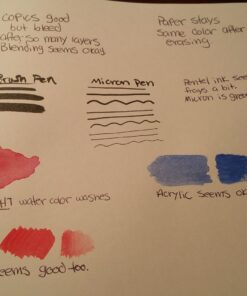 copics good
but bleed
after so many layers
Blending seems okay
Paper stays
Same color after
erasing
Brush Pen
Micron Pen
Pentel ink see
frays a bit.
Micron is grea
H7 water color washes
Acrylic seems ok
seems good too.